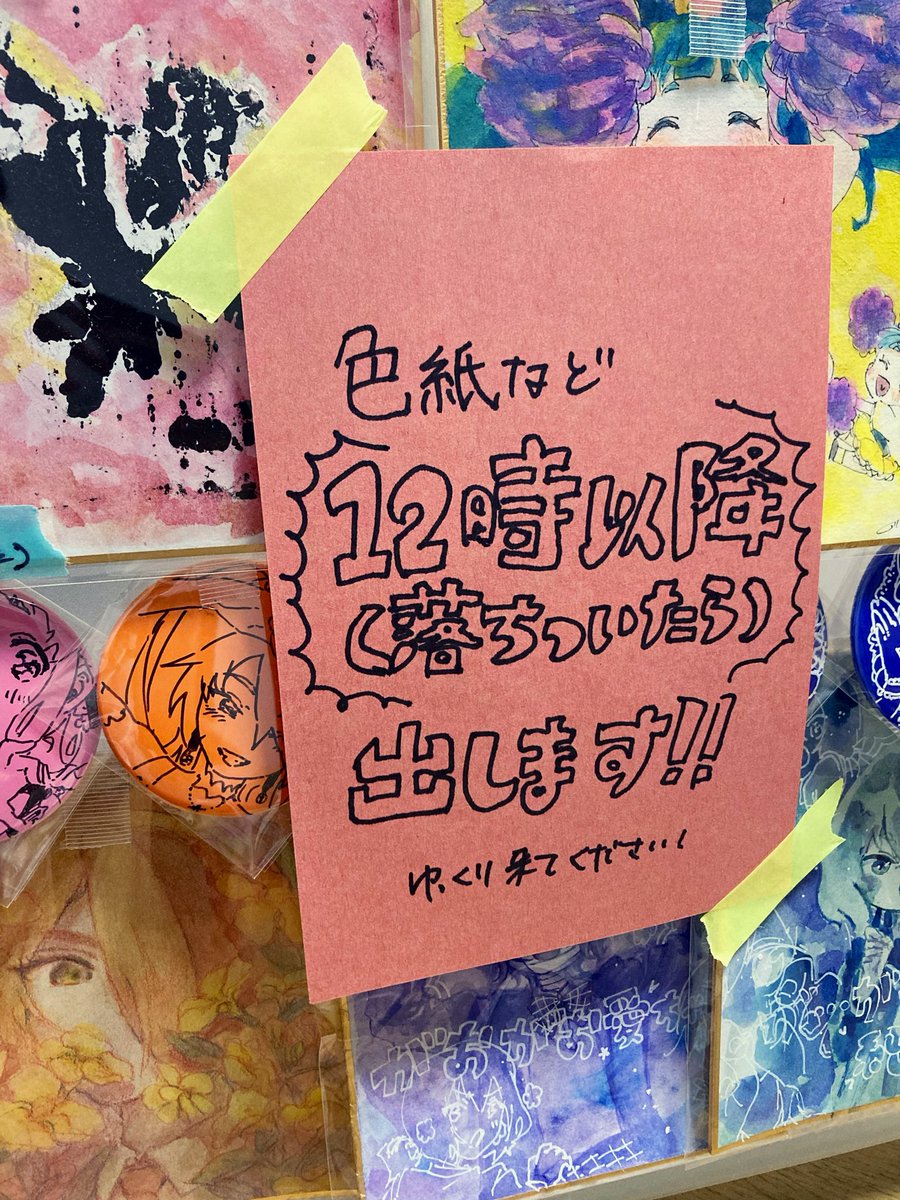 色紙など
12時以降
(落ちついたら)
出します!!
ゆっくり来てください!